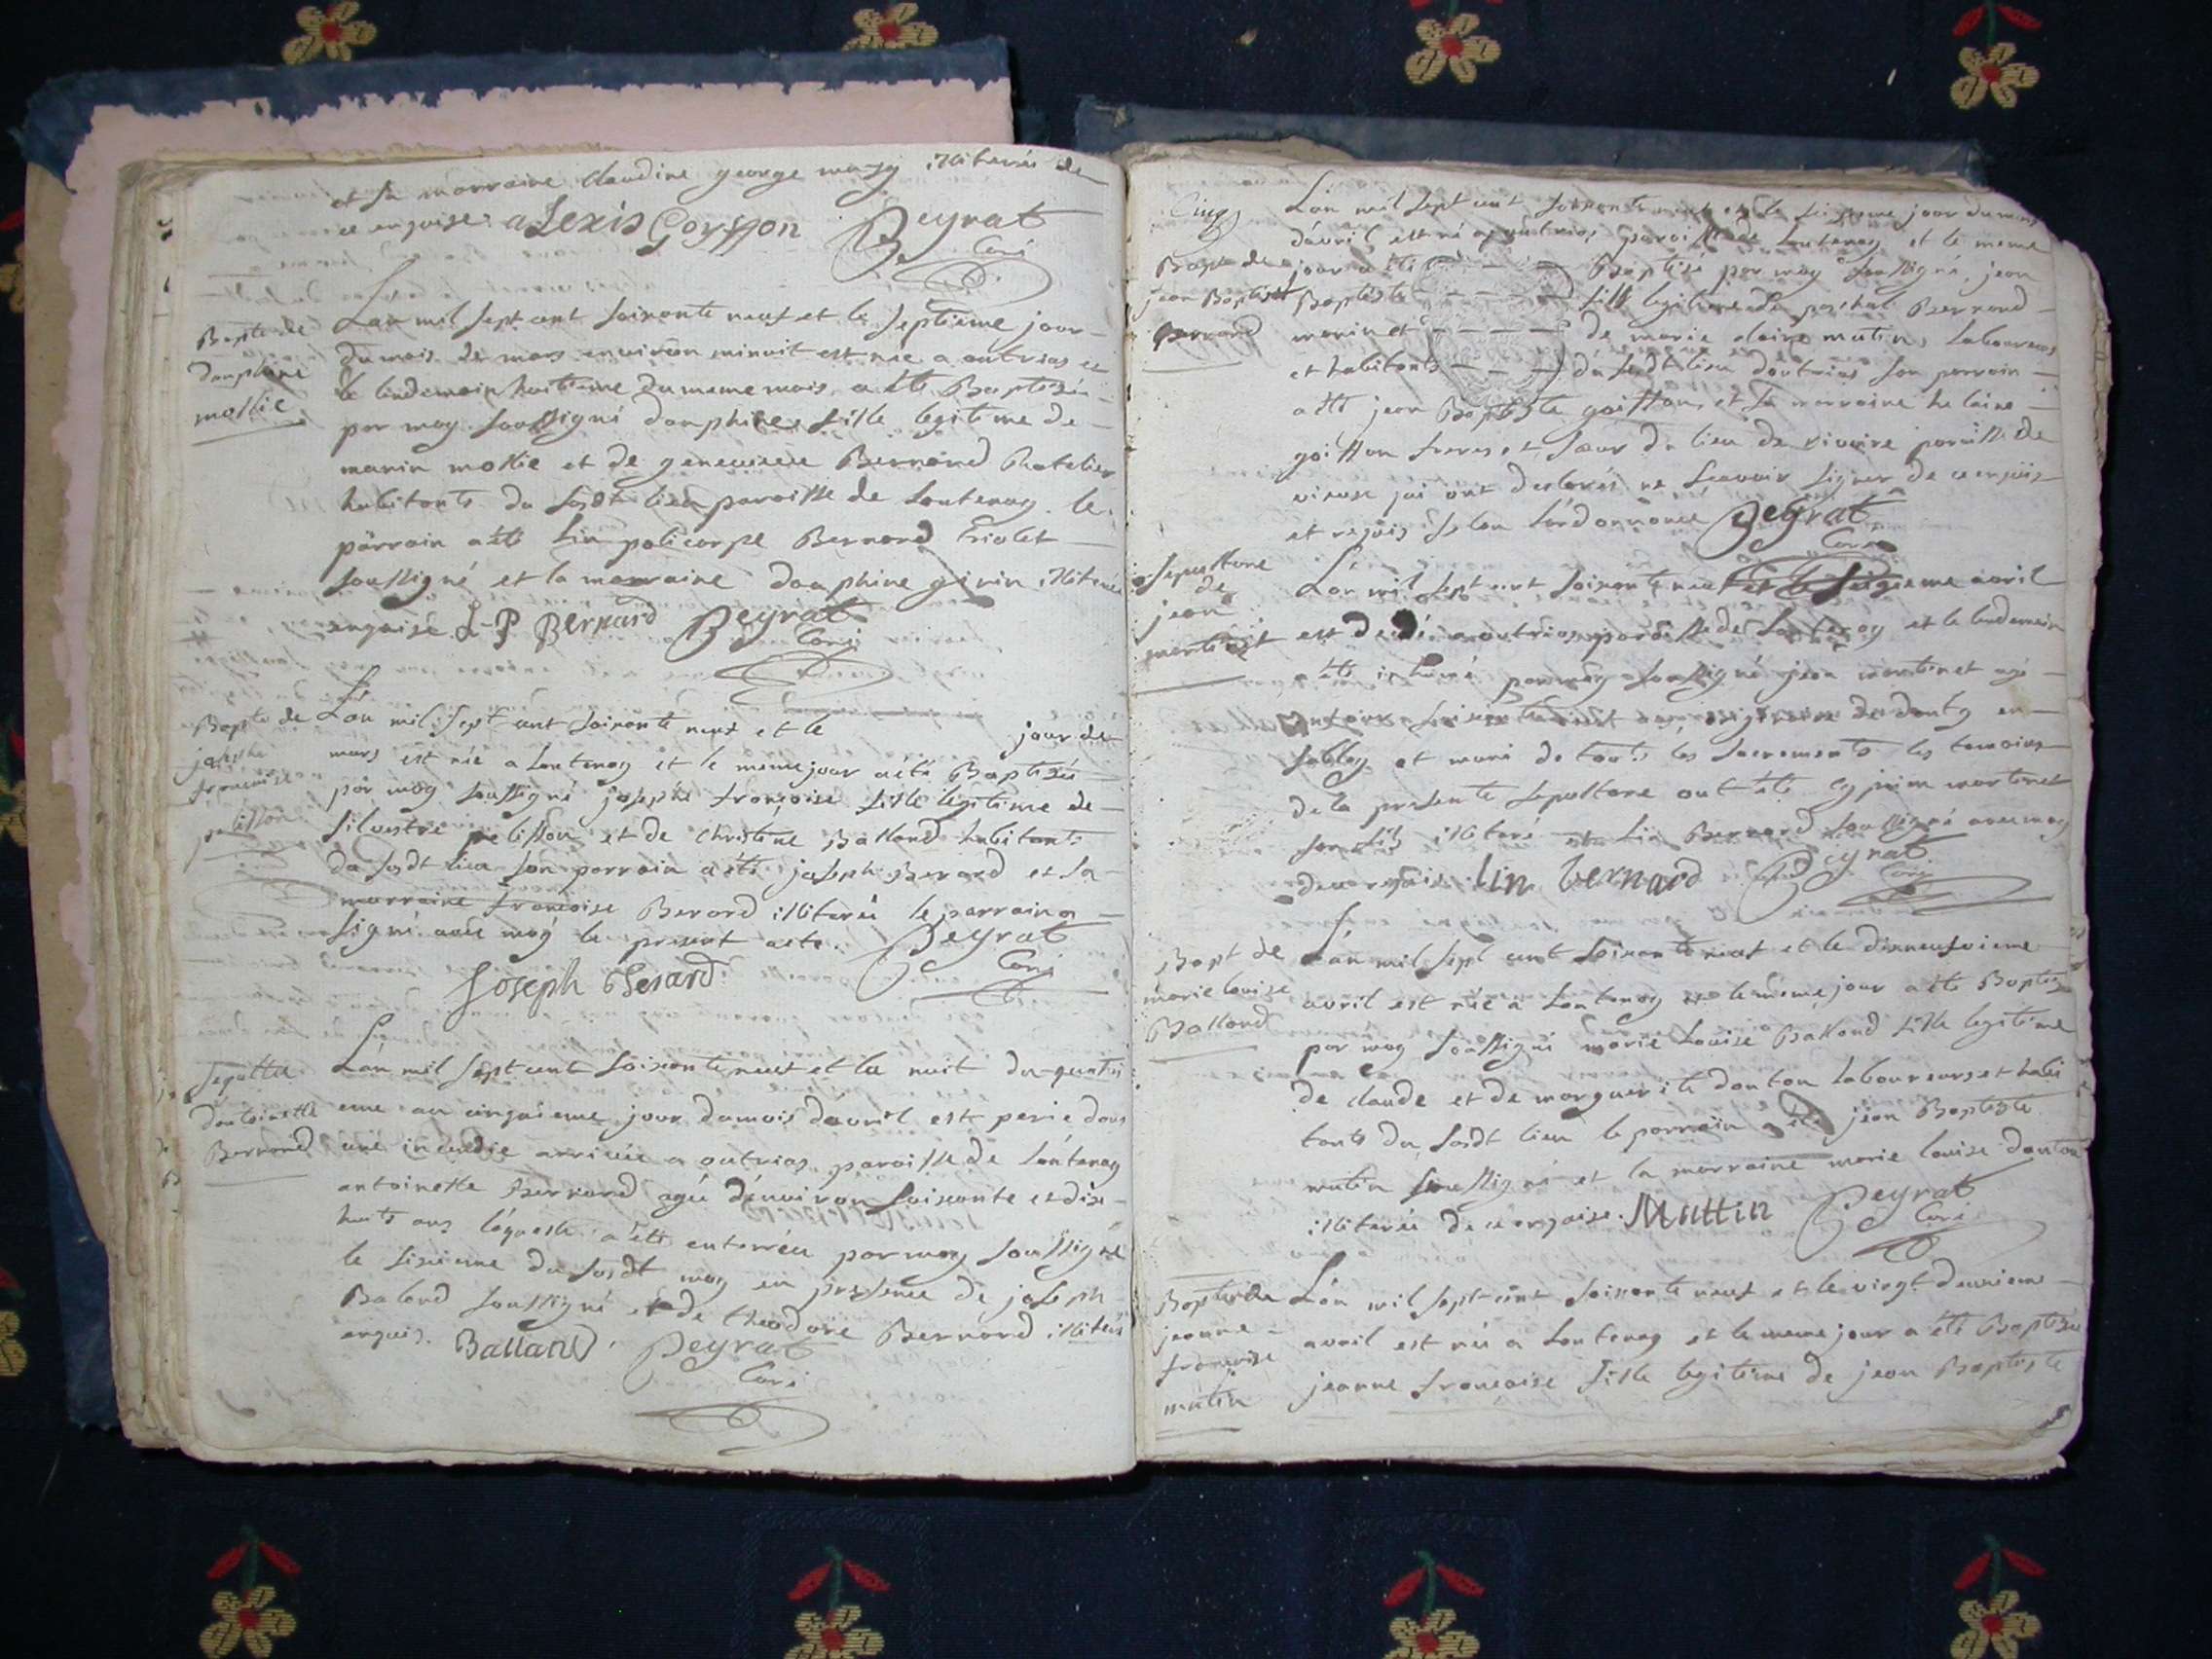 et sa marraine claudine george masy illiterée de
ce enquise. alexis Goyffon Peyrat
Curé
Bapte de
dauphine
mollie
L'an mil sept cent soixante neuf et le septieme jour
du mois de mars environ minuit est née a outrias et
le lendemain huitieme du meme mois a été Baptisée
par moy soussigné dauphine fille legitime de
marin mollie et de genevieve Bernard
habitants du susdt lieu paroisse de Lantenay. le
parrain a été Lin policarpe Bernard Triolet
soussigné et la marraine dauphine girin illiterée
enquise L-P Bernard Peyrat
Curé
Bapte de
josephe
françoise
pelisson
L'an mil sept cent soixante neuf et le jour de
mars est née a Lantenay et le meme jour a été Baptisée
par moy soussigné josephe françoise fille legitime de
silvestre pelisson et de christine Balland habitants
du susdt lieu son parrain a été joseph Berard et sa
marraine françoise Berard illiterée le parrain a
signé avec moy le present acte. Peyrat
Curé
Joseph Berard
Sepultre
dantoinette
Bernard
L'an mil sept cent soixante neuf et la nuit du quatri
eme au cinquieme jour du mois davril est perie dans
une incendie arrivée a outrias paroisse de Lantenay
antoinette Bernard agée denviron soixante et dix
huit ans laquelle a été enterrée par moy soussigné
le sixieme du susdt moy en presence de joseph
Baland soussigné et de theodore Bernard illiteré
enquis. Balland Peyrat
Curé
Cinq
Bapt de
jean Baptiste
Bernard
L'an mil sept cent soixante neuf et le seizieme jour du mois
d'avril est né a outrias paroisse de Lantenay et le meme
jour a été Baptisé par moy soussigné jean
Baptiste fils legitime de paschal Bernard
marin et de marie claire mutin, laboureurs
et habitants du susdt lieu doutrias son parrain
a été jean Baptiste goiffon, et sa marraine helaine
goiffon freres et sœur du lieu de paroisse de
vieuse qui ont declarés ne scavoir signer de ce enquis
et requis selon l'ordonnance Peyrat
Curé
Sepulture
de
jean
martinet
L'an mil sept cent soixante neuf et le seizieme avril
est decedé a outrias paroisse de Lantenay et le lendemain
a été inhumé par moy soussigné jean martinet agé
soixante
et muni de touts les sacrements les temoins
de la presente sepulture ont été martinet
son fils illiteré et Lin Bernard soussigné avec moy
de ce enquis. lin bernard Peyrat
Curé
Bapt de
marie louise
Balland
L'an mil sept cent soixante neuf et le dixneufvieme
avril est née a Lantenay et le meme jour a été Baptisée
par moy soussigné marie Louise Balland fille legitime
de claude et de marguerite danton laboureurs et habi
tants du susdt lieu le parrain a été jean Baptiste
mutin soussigné et la marraine marie louise danton
illiterée de ce enquise. Muttin Peyrat
Curé
Bapte de
jeanne
françoise
mutin
L'an mil sept cent soixante neuf et le vingt deuxieme
avril est née a Lantenay et le meme jour a été Baptisée
jeanne françoise fille legitime de jean Baptiste